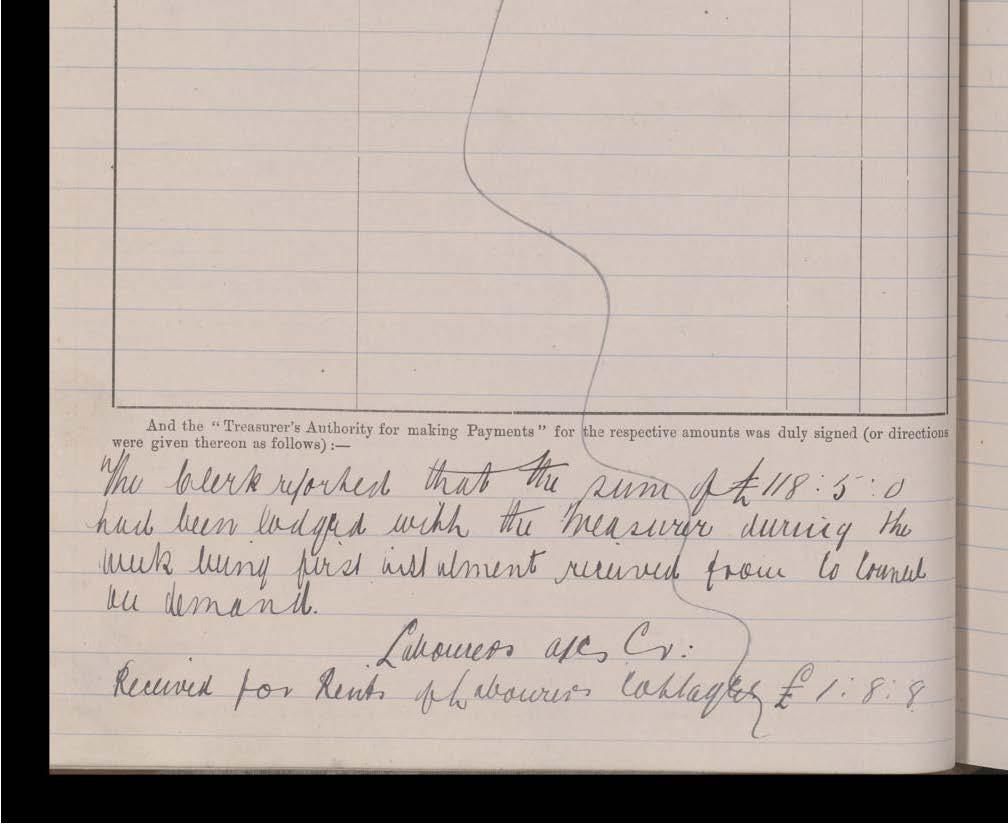 And the "Treasurer's Authority for making Payments" for the respective amounts was duly signed (or directions
were given thereon as follows):—
The Clerk reported that the sum of £118:5:0
had been lodged with the Treasurer during the
week being first instalment received from Co Council
on demand.
Labourers a/cs Cr:
Received for Rents of Labourers Cottages £1:8:8